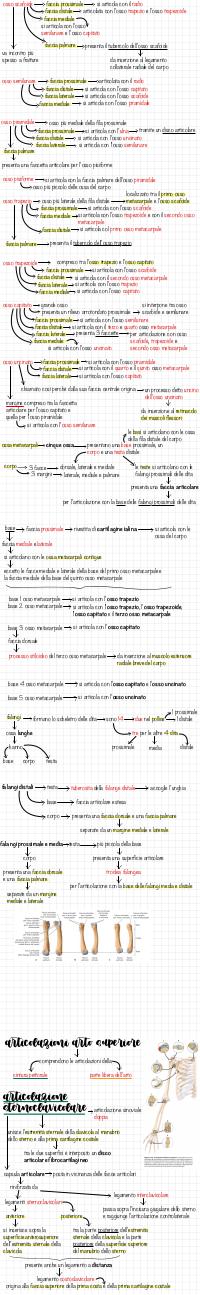 osso scafoide → faccia prossimale → si articola con il radio
faccia distale → si articola con l'osso trapezio e l'osso trapezoide
faccia mediale
si articola con l'osso
semilunare e l'osso capitato
faccia palmare → presenta il tubercolo dell'osso scafoide
va incontro più
spesso a fratture
da inserzione al legamento
collaterale radiale del carpo
osso semilunare → faccia prossimale → si articola con il radio
faccia distale → si articola con l'osso capitato
faccia laterale → si articola con l'osso scafoide
faccia mediale → si articola con l'osso piramidale
osso piramidale → osso più mediale della fila prossimale
faccia prossimale → si articola con l'ulna → tramite un disco articolare
faccia distale → si articola con l'osso uncinato
faccia laterale → si articola con l'osso semilunare
faccia palmare
presenta una faccetta articolare per l'osso pisiforme
osso pisiforme → si articola con la faccia palmare dell'osso piramidale
osso più piccolo delle ossa del carpo
localizzato tra il primo osso
osso trapezio → osso più laterale della fila distale → metacarpale e l'osso scafoide
faccia prossimale → si articola con l'osso scafoide
faccia mediale → si articola con l'osso trapezoide e con il secondo osso
metacarpale
faccia distale → si articola col primo osso metacarpale
faccia palmare → presenta il tubercolo dell'osso trapezio
osso trapezoide → compreso tra l'osso trapezio e l'osso capitato
faccia prossimale → si articola con l'osso scafoide
faccia distale → si articola con il secondo osso metacarpale
faccia laterale → si articola con l'osso trapezio
faccia mediale → si articola con l'osso capitato
osso capitato → grande osso
si interpone tra osso
presenta un rilievo arrotondato prossimale → scafoide e semilunare
faccia prossimale → si articola con l'osso semilunare
faccia distale → si articola con il terzo e quarto osso metacarpale
faccia laterale → presenta 3 faccette → per articolazione con osso
faccia mediale
scafoide, trapezoide e
si articola con l'osso uncinato
secondo osso metacarpale
osso uncinato → faccia prossimale → si articola con l'osso piramidale
faccia distale → si articola con il quarto e il quinto osso metacarpale
faccia laterale → si articola con l'osso capitato
chiamato così perché dalla sua faccia ventrale origina → un processo detto uncino
dell'osso uncinato
margine compreso tra la faccetta
articolare per l'osso capitato e
quella per l'osso piramidale
da inserzione al retinacolo
dei muscoli flessori
si articola con l'osso semilunare
le basi si articolano con le ossa
della fila distale del carpo
ossa metacarpale → cinque ossa → presentano una base prossimale, un
corpo e una testa distale
corpo → 3 facce → dorsale, laterale e mediale
3 margini → laterale, mediale e palmare
le teste si articolano con le
falangi prossimali delle dita
presenta una faccia articolare
per l'articolazione con la base delle falangi prossimali delle dita
base → faccia prossimale → rivestita di cartilagine ialina → si articola con le
ossa del carpo
faccia mediale e laterale
si articolano con le ossa metacarpali contigue
eccetto le facce mediale e laterale della base del primo osso metacarpale
e la faccia mediale della base del quinto osso metacarpale
base 1 osso metacarpale → si articola con l'osso trapezio
base 2 osso metacarpale → si articola con l'osso trapezio, l'osso trapezoide,
l'osso capitato e il terzo osso metacarpale
base 3 osso metacarpale → si articola con l'osso capitato
faccia dorsale
processo stiloideo del terzo osso metacarpale → da inserzione al muscolo estensore
radiale breve del carpo
base 4 osso metacarpale → si articola con l'osso capitato e l'osso uncinato
base 5 osso metacarpale → si articola con l'osso uncinato
falangi → formano lo scheletro delle dita → sono 14 → due nel pollice
prossimale
distale
ossa lunghe
tre per le altre 4 dita
hanno
prossimale media distale
base corpo testa
falangi distali → testa → tuberosità della falange distale → accoglie l'unghia
base → faccia articolare estesa
corpo → presenta una faccia dorsale e una faccia palmare
separate da un margine mediale e laterale
falangi prossimale e media → testa → più piccola della base
corpo
presenta una superficie articolare
presenta una faccia dorsale
e una faccia palmare
troclea falangea
separate da un margine
mediale e laterale
per l'articolazione con la base delle falangi media e distale
articolazioni arto superiore
comprendono le articolazioni della
cintura pettorale
parte libera dell'arto
articolazione
sternoclavicolare → articolazione sinoviale
doppia
unisce l'estremità sternale della clavicola al manubrio
dello sterno e alla prima cartilagine costale
tra le due superfici è interposto un disco
articolare di fibrocartilagineo
capsula articolare → posta in vicinanza delle facce articolari
rinforzata da
legamenti sternoclavicolari
legamento interclavicolare
passa sopra l'incisura giugulare dello sterno
e raggiunge l'articolazione controlaterale
anteriore
posteriore
si inserisce sopra la
superficie anterosuperiore
dell'estremità sternale della
clavicola
tra la parte posteriore dell'estremità
sternale della clavicola e la parte
posteriore della superficie superiore
del manubrio dello sterno
presente anche un legamento a distanza
legamento costoclavicolare
origina alla faccia superiore della prima costa e della prima cartilagine costale